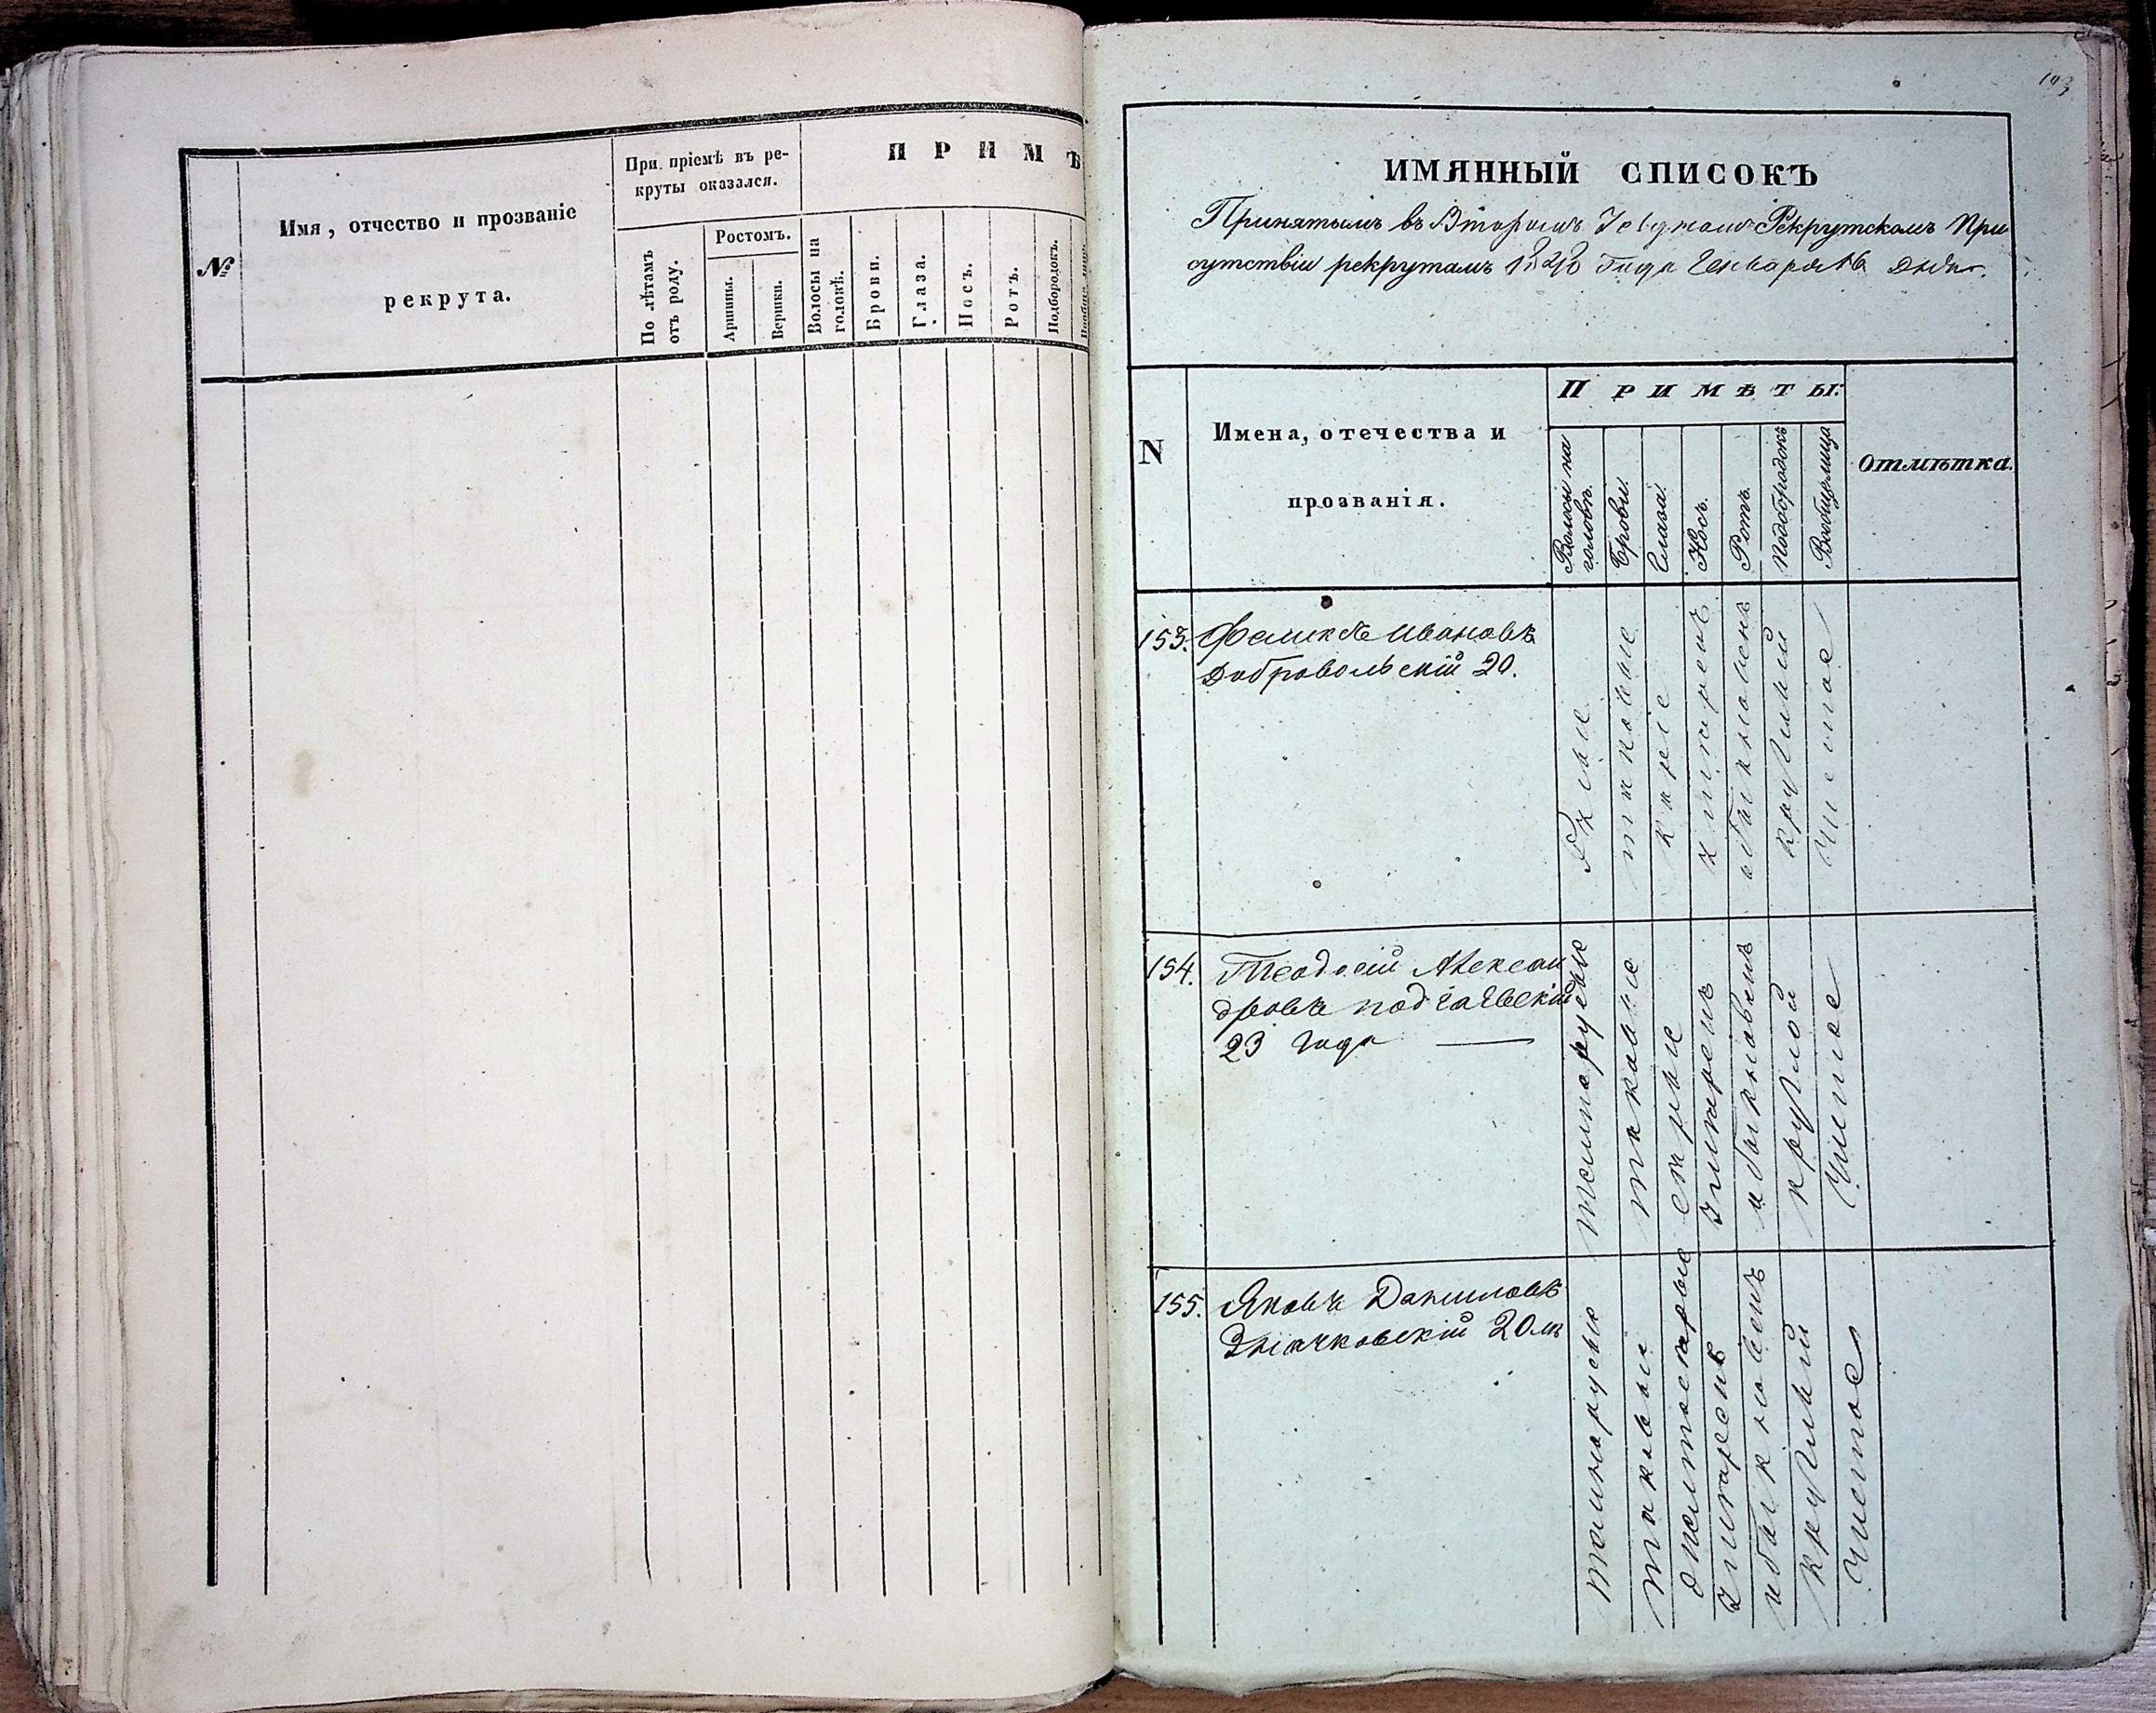 №
Имя, отчество и прозваніе
рекрута.
При пріемѣ въ ре-
круты оказался.
По лѣтамъ
отъ роду.
Ростомъ.
Аршины.
Вершки.
П Р И М Ѣ
Волосы на
головѣ.
Брови.
Глаза.
Носъ.
Ротъ.
Подбородокъ.
ИМЯННЫЙ СПИСОКЪ
Принятымъ въ Второмъ Рекрутскомъ При
сутствіи рекрутамъ года Генваря 16 дня.
N
Имена, отечества и
прозванія.
П Р И М Ѣ Т Ы:
Волосы на
головѣ.
Брови.
Глаза.
Носъ.
Ротъ.
Подбородокъ
Вообще лица
Отмѣтка.
153.
Феликсъ Ивановъ
Добровольскій 20.
таковые
каріе
умѣренъ
обыкновенъ
круглый
Чистое
154.
Теодосій Алексан
дровъ Подгаевскій
23 года
темнорусые
таковые
серые
умеренъ
обыкновенъ
круглой
Чистое
155.
Яковъ Даниловъ
Значковскій 20 лѣ
темнорусые
таковые
умеренъ
обыкновенъ
круглый
Чистое